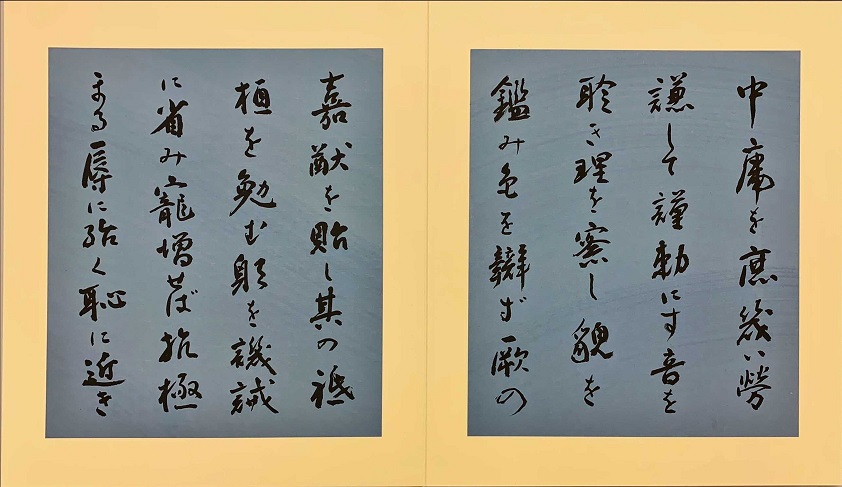 中庸を庶幾い労
謙して謹勅にす音を
聆き理を察し貌を
鑑み色を辯ず厥の
嘉猷を貽し其の祗
植を勉む躬を譏誡
に省み寵増せば抗極
まる辱に殆く恥に近き